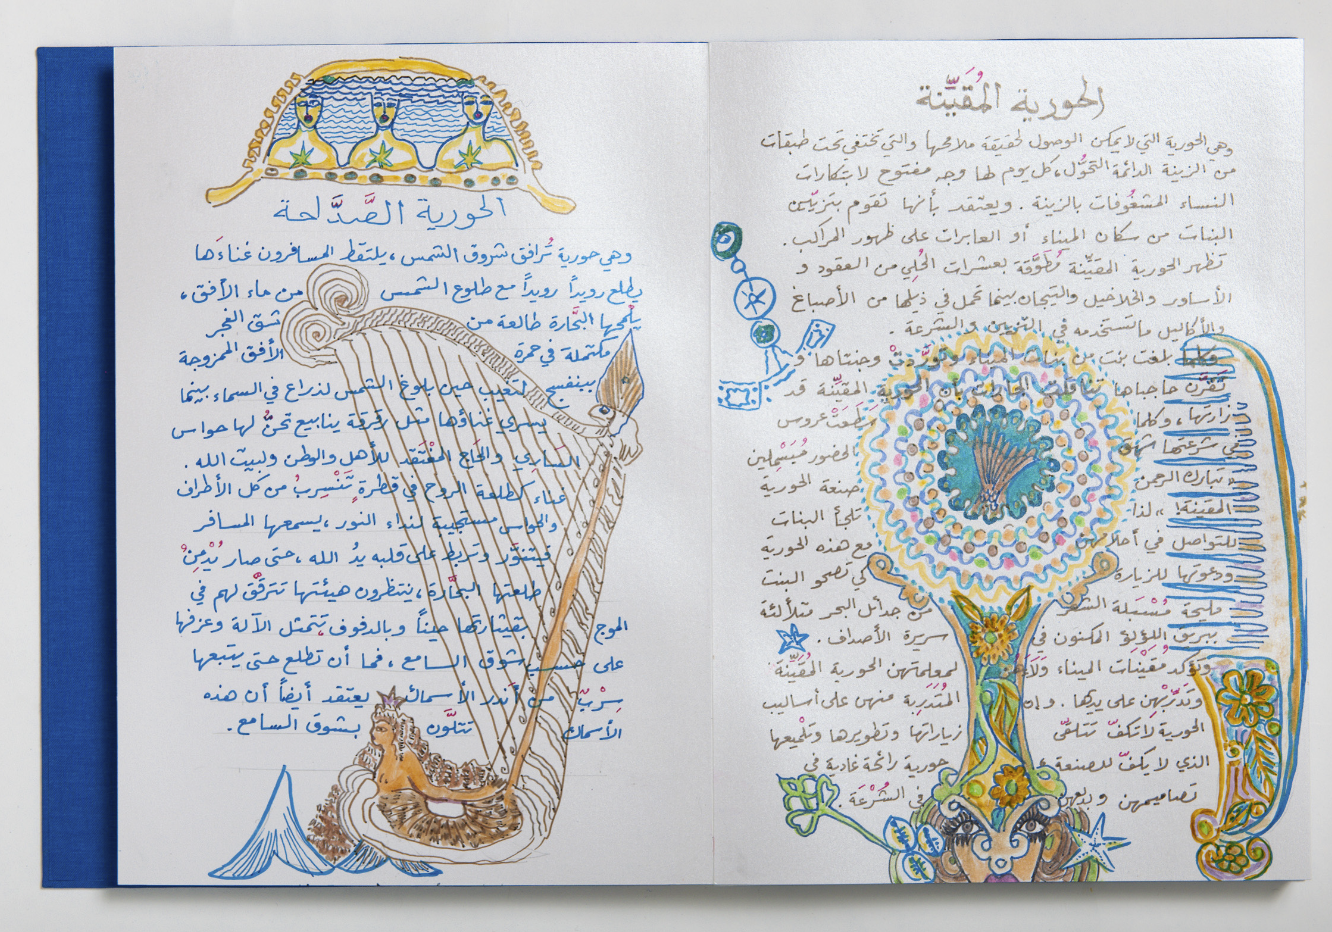 الحورية المُقيِّنة
وهي الحورية التي لا يمكن الوصول لحقيقة ملامحها والتي تختفي تحت طبقات
من الزينة الدائمة التحوّل، كل يوم لها وجه مفتوح لابتكارات
النساء المشغُوفات بالزينة. ويعتقد بأنها تقوم بتزيين
البنات من سكان الميناء أو العابرات على ظهور المراكب.
تظهر الحورية المقيّنة مُطوَّقة بعشرات الحُلي من العقود و
الأساور والخلاخيل والتيجان بينما تحمل في ذيلها من الأصباغ
والأكاليل ما تستخدمه في التزيين والشرعة.
بلغت بنت من بنات الميناء وجنتاها و
حاجباها بأن الحورية المقيّنة قد
زارتها، وكلما عروس
في شرعتها الحضور
تبارك الرحمن صنعة الحورية
المقينة! لذا تلجأ البنات
للتواصل في مع هذه الحورية
ودعوتها للزيارة كي تصحو البنت
مليحة مُسْبَلة من جدائل البحر متلألئة
ببريق اللؤلؤ المكنون في سريرة الأصداف.
مقيّنات الميناء لمعلمتهن الحورية المُقيِّنة
على يدها. منهن على أساليب
الحورية لا تكفّ تتلقّى زياراتها وتطويرها وتلميعها
الذي لا يكفّ للصنعة حورية رائحة غادية في
تصاميمهن في الشّرعة.
الحورية الصَّدَّاحة
وهي حورية تُرافق شروق الشمس، يلتقط المسافرون غناءَها
يطلع رويداً رويداً مع طلوع الشمس من ماء الأفق،
يلمحها البحّارة طالعة من شق الفجر
مكتملة في حمرة الأفق الممزوجة
ببنفسج لتغيب حين بلوغ الشمس لذراع في السماء بينما
يسري غناؤها مثل رقرقة ينابيع تحنُّ لها حواس
الساري والحاج المفتقد للأهل والوطن ولبيت الله.
غناء كطلعة الروح في قطرة تَنْسرِبُ من كل الأطراف
والحواس مستجيبة لنداء النور، يسمعها المسافر
فيتنوَّر وتربط على قلبه يدُ الله، حتى صار يُدْمِنُ
طلعتها البحّارة، ينتظرون هيئتها تترقّق لهم في
الموج بقيثارتها حيناً وبالدفوف تتمثل الآلة وعزفها
على حسب شوق السامع، فما أن تطلع حتى يتبعها
سِرْبٌ من أندر الأسماك يعتقد أيضاً أن هذه
الأسماك تتلوّن بشوق السامع.